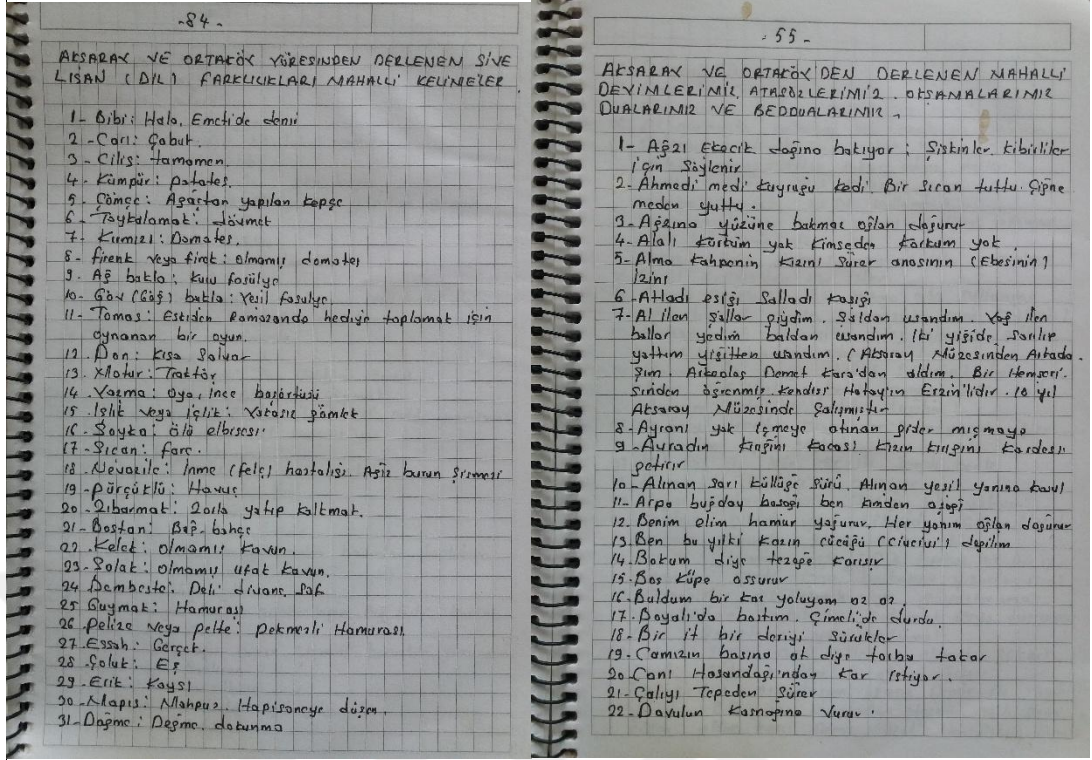 -84-
AKSARAY VE ORTAKÖY YÖRESİNDEN DERLENEN ŞİVE
LİSAN (DİL) FARKLILIKLARI MAHALLİ KELİMELER
1- Bibi: Hala, Emeti de denir
2-Carı: Çabuk.
3- Ciliş: tamamen
4- Kümpür: patates.
5- Çömçe: Ağaçtan yapılan kepçe
6- Taykalamak: dövmek
7- Kırmızı: Domates.
8- firenk veya firek: olmamış domates
9- Ağ bakla: Kuru fasülye
10- Göv (Göğ) bakla: Yeşil fasulye
11- Tomas: Eskiden Ramazanda hediye toplamak için
oynanan bir oyun.
12- Don: Kısa Şalvar
13- Motur: Traktör
14- Yazma: Oya, ince başörtüsü
15- Işlık veya İçlik: Yakasız gömlek
16- Soyka: ölü elbisesi.
17- Sıcan: fare.
18- Nevazile: İnme (felç) hastalığı. Ağız burun şişmesi
19- Pürçüklü: Havuç
20- Zıbarmak: Zorla yatıp kalkmak.
21- Bostan: Bağ-bahçe
22- Kelek: olmamış kavun.
23- Şalak: olmamış ufak kavun.
24 Dembeste: Deli divane, Saf
25 Guymak: Hamuraşı
26 Pelize veya pelte: pekmezli Hamuraşı
27- Essah: Gerçek.
28 Çoluk: Eş
29- Erik: Kayısı
30- Mapıs: Mahpus. Hapisaneye düşen.
31- Dağme: Değme, dokunma
-55-
AKSARAY VE ORTAKÖY DEN DERLENEN MAHALLİ
DEYİMLERİMİZ, ATASÖZLERİMİZ, OKŞAMALARIMIZ
DUALARIMIZ VE BEDDUALARIMIZ.
1- Ağzı Ekecik dağına bakıyor: Şişkinler, kibirliler
için Söylenir
2- Ahmedi medi kuyruğu kedi. Bir sıcan tuttu. Çiğne
meden yuttu.
3- Ağzına yüzüne bakmaz oğlan doğurur
4- Alalı korkum yok kimseden korkum yok.
5- Alma kahpenin kızını Sürer anasının (Ebesinin)
izini
6- Atladı eşiği Salladı kaşığı
7- Al ilen Şallar giydim. Şaldan usandım. Yağ ilen
ballar yedim baldan usandım. İki yiğide, Sarılıp
yattım yiğitten usandım. (Aksaray Müzesinden Arkada-
şım. Arkeolog Demet Kara'dan aldım. Bir Hemşeri-
sinden öğrenmiş. Kendisi Hatay'ın Erzin'lidir. 10 yıl
Aksaray Müzesinde Çalışmıştır
8- Ayranı yok içmeye atınan gider sıçmaya
9- Avradın kırığını kocası kızın kırığını kardeşi
getirir
10- Alınan sarı küllüğe Sürü. Alınan yeşil yanına koşul
11- Arpa buğday başağı ben kimden aşağı
12. Benim elim hamur yağurur. Her yanım oğlan doğurur
13- Ben bu yılki kazın cücüğü (Civcivi) değilim
14. Bokum diye tezeğe karışır
15- Boş küpe ossurur
16- Buldum bir kaz yoluyom az az.
17. Boyalı'da bastım. Çimeli'de durdu.
18- Bir it bir deriyi Sürükler
19- Camızın başına at diye torba takar
20 Canı Hasandağı'ndan kar istiyor.
21- Çalıyı Tepeden Sürer
22- Davulun Kasnağına Vurur.